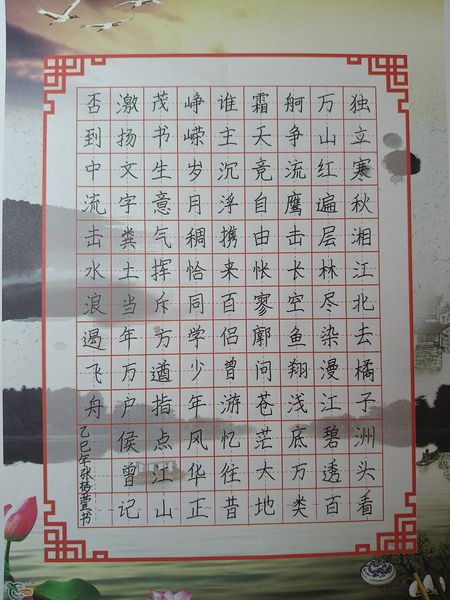 独立寒秋湘江北去橘子洲头看
万山红遍层林尽染漫江碧透百
舸争流鹰击长空鱼翔浅底万类
霜天竞自由怅寥廓问苍茫大地
谁主沉浮携来百侣曾游忆往昔
峥嵘岁月稠恰同学少年风华正
茂书生意气挥斥方遒指点江山
激扬文字粪土当年万户侯曾记
否到中流击水浪遏飞舟
乙巳年张萱书